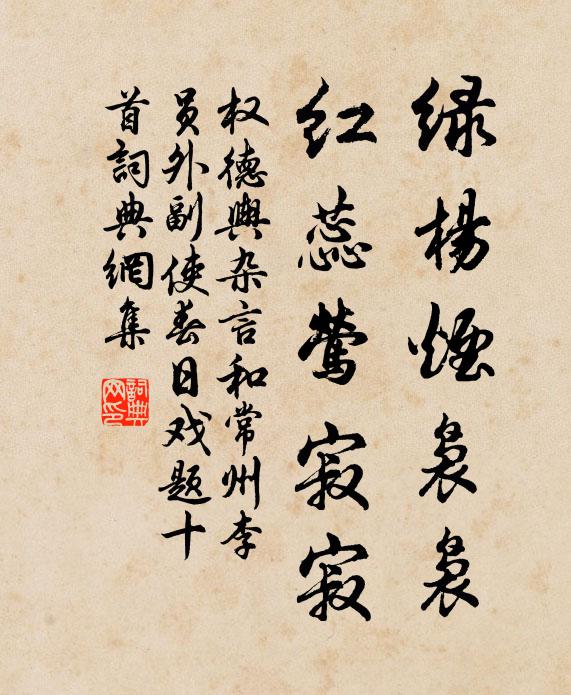 绿杨烟袅袅
红蕊莺寂寂
权德舆杂言和常州李
员外副使春日戏题十
首词典网集
詞典网印